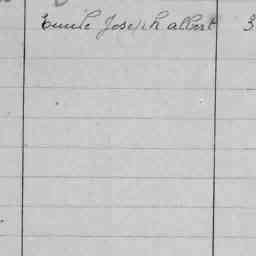 Emile Joseph albert 3